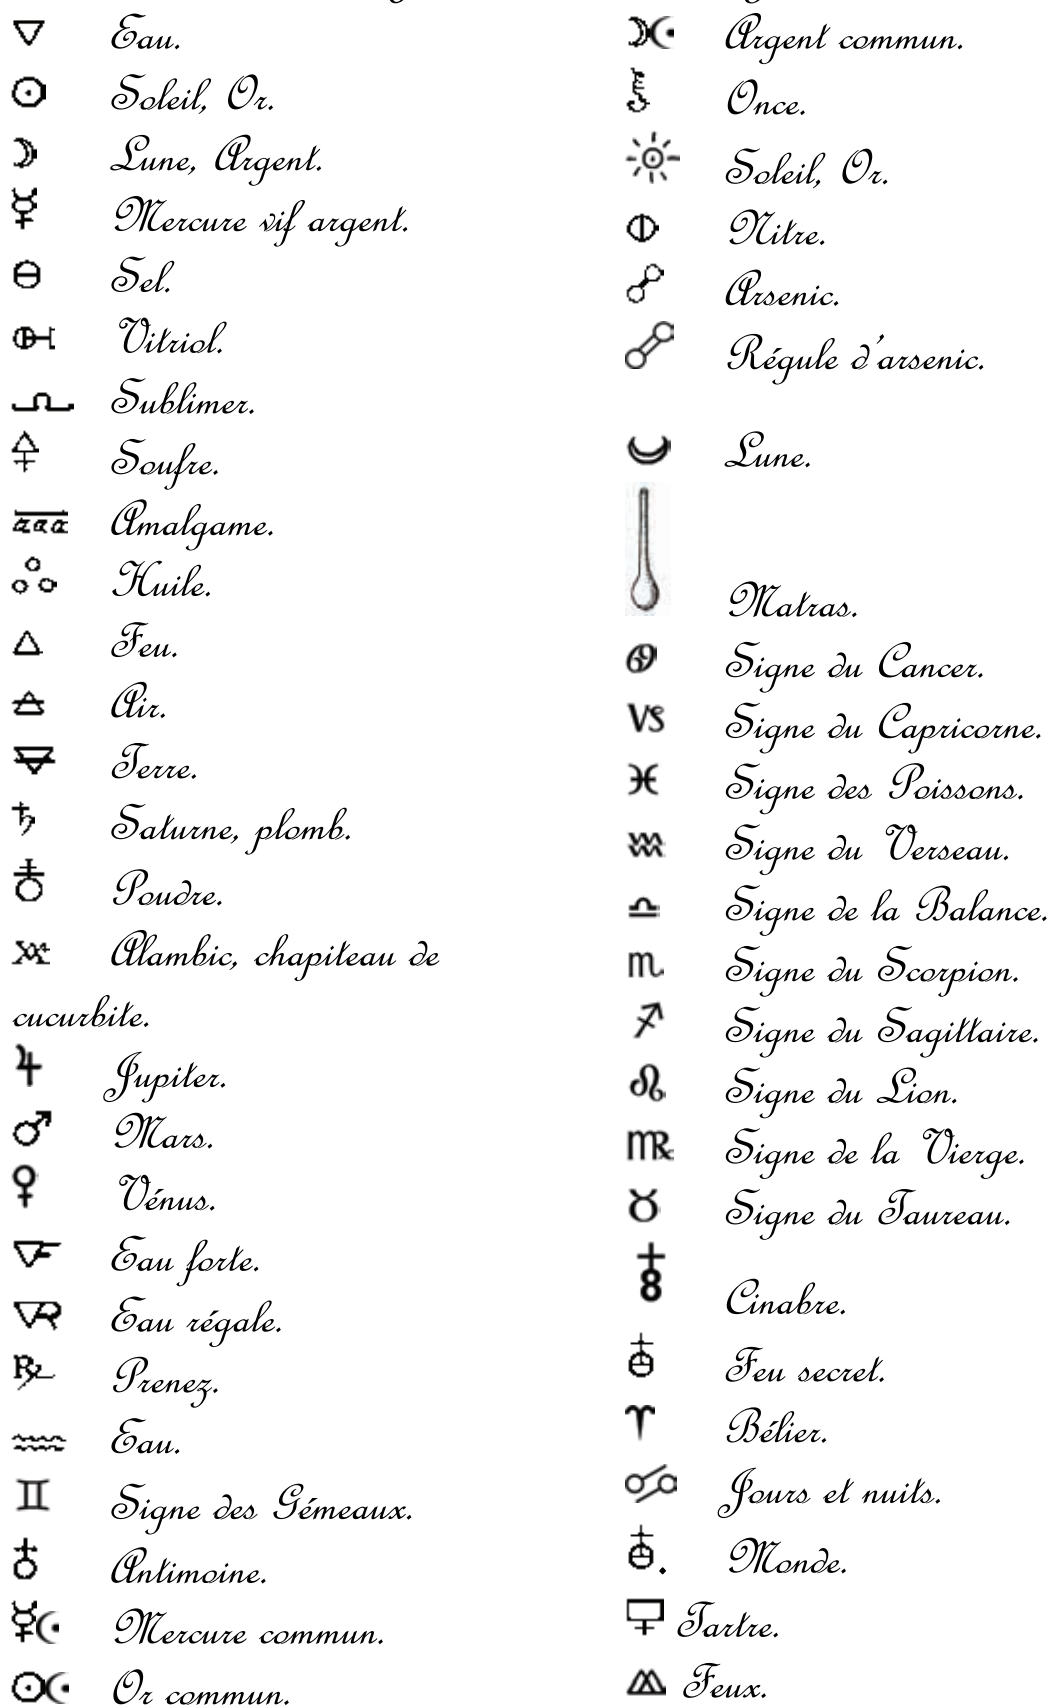 Eau.
Soleil, Or.
Lune, Argent.
Mercure vif argent.
Sel.
Vitriol.
Sublimer.
Soufre.
aaa Amalgame.
Huile.
Feu.
Air.
Terre.
Saturne, plomb.
Poudre.
Alambic, chapiteau de
cucurbite.
Jupiter.
Mars.
Vénus.
Eau forte.
Eau régale.
Prenez.
Eau.
Signe des Gémeaux.
Antimoine.
Mercure commun.
Or commun.
Argent commun.
Once.
Soleil, Or.
Nitre.
Arsenic.
Régule d'arsenic.
Lune.
Matras.
Signe du Cancer.
VS Signe du Capricorne.
Signe des Poissons.
Signe du Verseau.
Signe de la Balance.
Signe du Scorpion.
Signe du Sagittaire.
Signe du Lion.
Signe de la Vierge.
Signe du Taureau.
Cinabre.
Feu secret.
Bélier.
Jours et nuits.
Monde.
Tartre.
Feux.